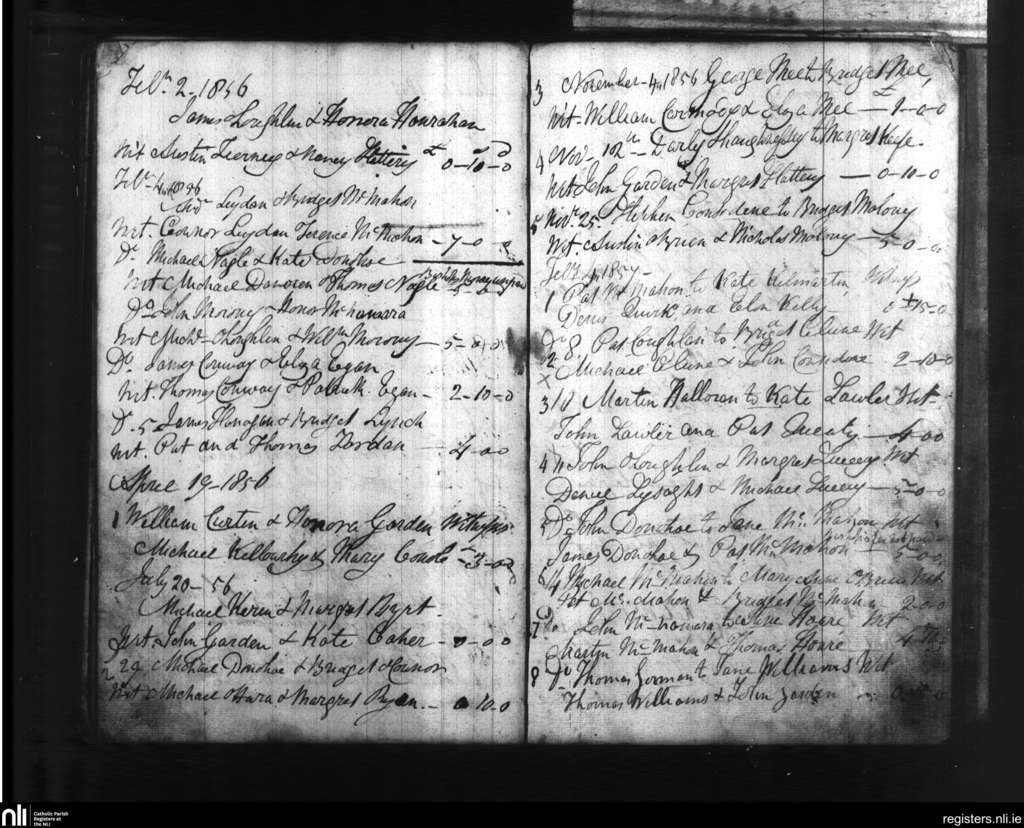 Feb. 2 - 1856
James Loghlin & Honora Honrahan
Wit Austin Tierney & Nancy Slattery £ 0-10-0
Feb. 4th 1856
Leydon & Bridget McMahon
Wit. Connor Leydon Terence McMahon - 7-0
Do. Michael Nagle & Kate Donohoe
Wit Michael Donovan & Thomas Nagle
Do John Morony Honor McNamara
Wit Michl. O Loughlin & Willm Morony - 5-0-0
Do. James Conway & Eliza Egan
Wit. Thomas Conway & Patrick Egan - 2-10-0
D. 5 James Flanagan & Bridget Lynch
Wit. Pat and Thomas Jordan - 4-0-0
April 19 - 1856
1 William Curten & Honora Garden Witnesses
Michael Killourhy & Mary Console - 3-0-0
July 20 - 56
Michael Kerin & Margret Byrt
Wit. John Garden & Kate Caher - 0-0
2 29 Michael Donohoe & Bridget O Connor
Wit Michael O Hara & Margret Ryan - 0 10-0
3 November - 4th 1856 George Mee to Bridget Mee,
Wit - William & Eliza Mee - £1-0-0
4 Nov. 12th - Darly Shaughnessy to Margret
Wit John Garden & Margret Slattery - 0-10-0
5 Nov. 25. Stephen Considene to Bridget Molony
Wt. Austin O Brien & Nicholas Molony - 5-0-0
Feb. 4, 1857 -
1 Pat McMahon to Kate Kilmartin
Denis Quirk and Elen Kelly 0 £15-0
Do 8 Pat Coughlan to Bridget Clune Wit
2 Michael Clune & John Considine 2-10-0
3 18 Martin Halloran to Kate Lawler Wit
John Lawler and Pat Sweeny - 4 00
4 11 John O Loughlin & Margret Wit
Daniel Lysaght & Michael - 5-0-0
5 Do John Donohoe to Jane McMahon Wit
James Donohoe & Pat McMahon 5-00
Michael McMahon to Mary Anne O Brien Wit
Pat McMahon & Bridget McMahon 2-0-0
7 Do John McNamara to Hoare Wit
Martin McMahon & Thomas Hoare
8 Do Thomas Gorman to Jane Williams Wit
Thomas Williams & John Garden
nli
Catholic Parish
Registers at
the NLI
registers.nli.ie